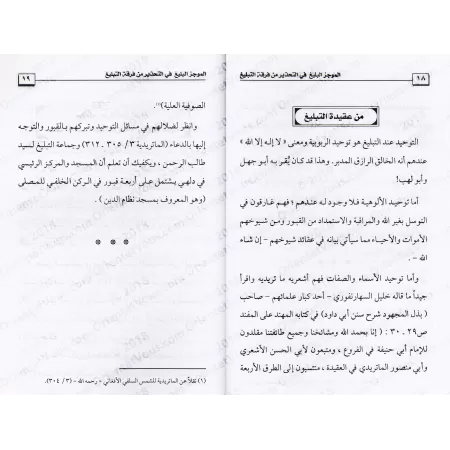 الموجز البليغ في التحذير من فرقة التبليغ
١٨
من عقيدة التبليغ
التوحيد عند التبليغ هو توحيد الربوبية ومعنى « لا إله إلا الله »
عندهم أنه الخالق الرازق المدبر. وهذا قد كان يُقر به أبو جهل
وأبو لهب!
أما توحيد الألوهية فلا وجود له عندهم ؛ فهم غارقون في
التوسل بغير الله والمراقبة والاستمداد من القبور ومن شيوخهم
الأموات والأحياء مما سيأتي بيانه في عقائد شيوخهم - إن شاء
الله - .
وأما توحيد الأسماء والصفات فهم أشعريه ما تريديه واقرأ
جيداً ما قاله خليل السهارنفوري - أحد كبار علمائهم - صاحب
( بذل المجهود شرح سنن أبي داود) في كتابه المهند على المفند
ص٢٩ - ٣٠ : ( إنا بحمد الله ومشائخنا وجميع طائفتنا مقلدون
للإمام أبي حنيفة في الفروع ، ومتبعون لأبي الحسن الأشعري
وأبي منصور الماتريدي في العقيدة ، منتسبون إلى الطرق الأربعة
الموجز البليغ في التحذير من فرقة التبليغ
١٩
الصوفية العلية)(١).
وانظر لضلالهم في مسائل التوحيد وتبركهم بالقبور والتوجه
إليها بالدعاء (الماتريدية ٣/ ٣٠٥ - ٣١٢) وجماعة التبليغ لسيد
طالب الرحمن ، ويكفيك أن تعلم أن المسجد والمركز الرئيسي
في دلهي يشتمل على أربعة قبور في الركن الخلفي للمصلى
(وهو المعروف بمسجد نظام الدين ) .
* * *
(١) نقلاً عن الماتريدية للشمس السلفي الأفغاني - رحمه الله - (٣/ ٣٠٤).